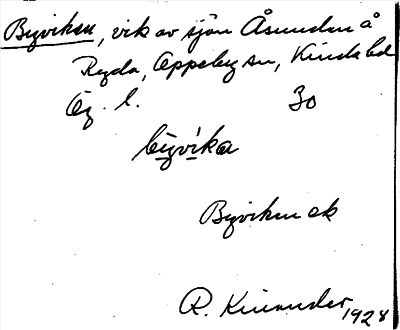 Byviken, vik av sjön Åsunden å
Ryda, Oppeby sn, Kinda hd
Ög. l. 30
by̱vi̱ka
Byviken ek
R. Kinander 1928